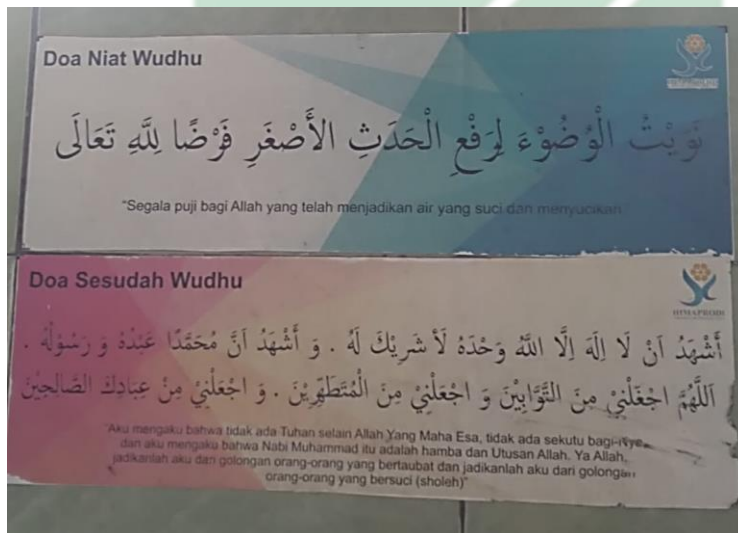 Doa Niat Wudhu
نَوَيْتُ الْوُضُوْءَ لِرَفْعِ الْحَدَثِ الْأَصْغَرِ فَرْضًا لِلَّهِ تَعَالَى
"Segala puji bagi Allah yang telah menjadikan air yang suci dan menyucikan
Doa Sesudah Wudhu
HIMAPRODI
أَشْهَدُ اَنْ لَا إِلَهَ إِلَّا اللَّهُ وَحْدَهُ لَا شَرِيْكَ لَهُ . وَ أَشْهَدُ اَنَّ مُحَمَّدًا عَبْدُهُ وَ رَسُوْلُهُ .
اَللَّهُمَّ اجْعَلْنِيْ مِنَ التَّوَّابِيْنَ وَ اجْعَلْنِيْ مِنَ الْمُتَطَهِّرِيْنَ . وَ اجْعَلْنِيْ مِنْ عِبَادِكَ الصَّالِحِيْنَ
"Aku mengaku bahwa tidak ada Tuhan selain Allah Yang Maha Esa, tidak ada sekutu bagi-Nya
dan aku mengaku bahwa Nabi Muhammad itu adalah hamba dan Utusan Allah. Ya Allah,
jadikanlah aku dari golongan orang-orang yang bertaubat dan jadikanlah aku dari golongan
orang-orang yang bersuci (sholeh)"